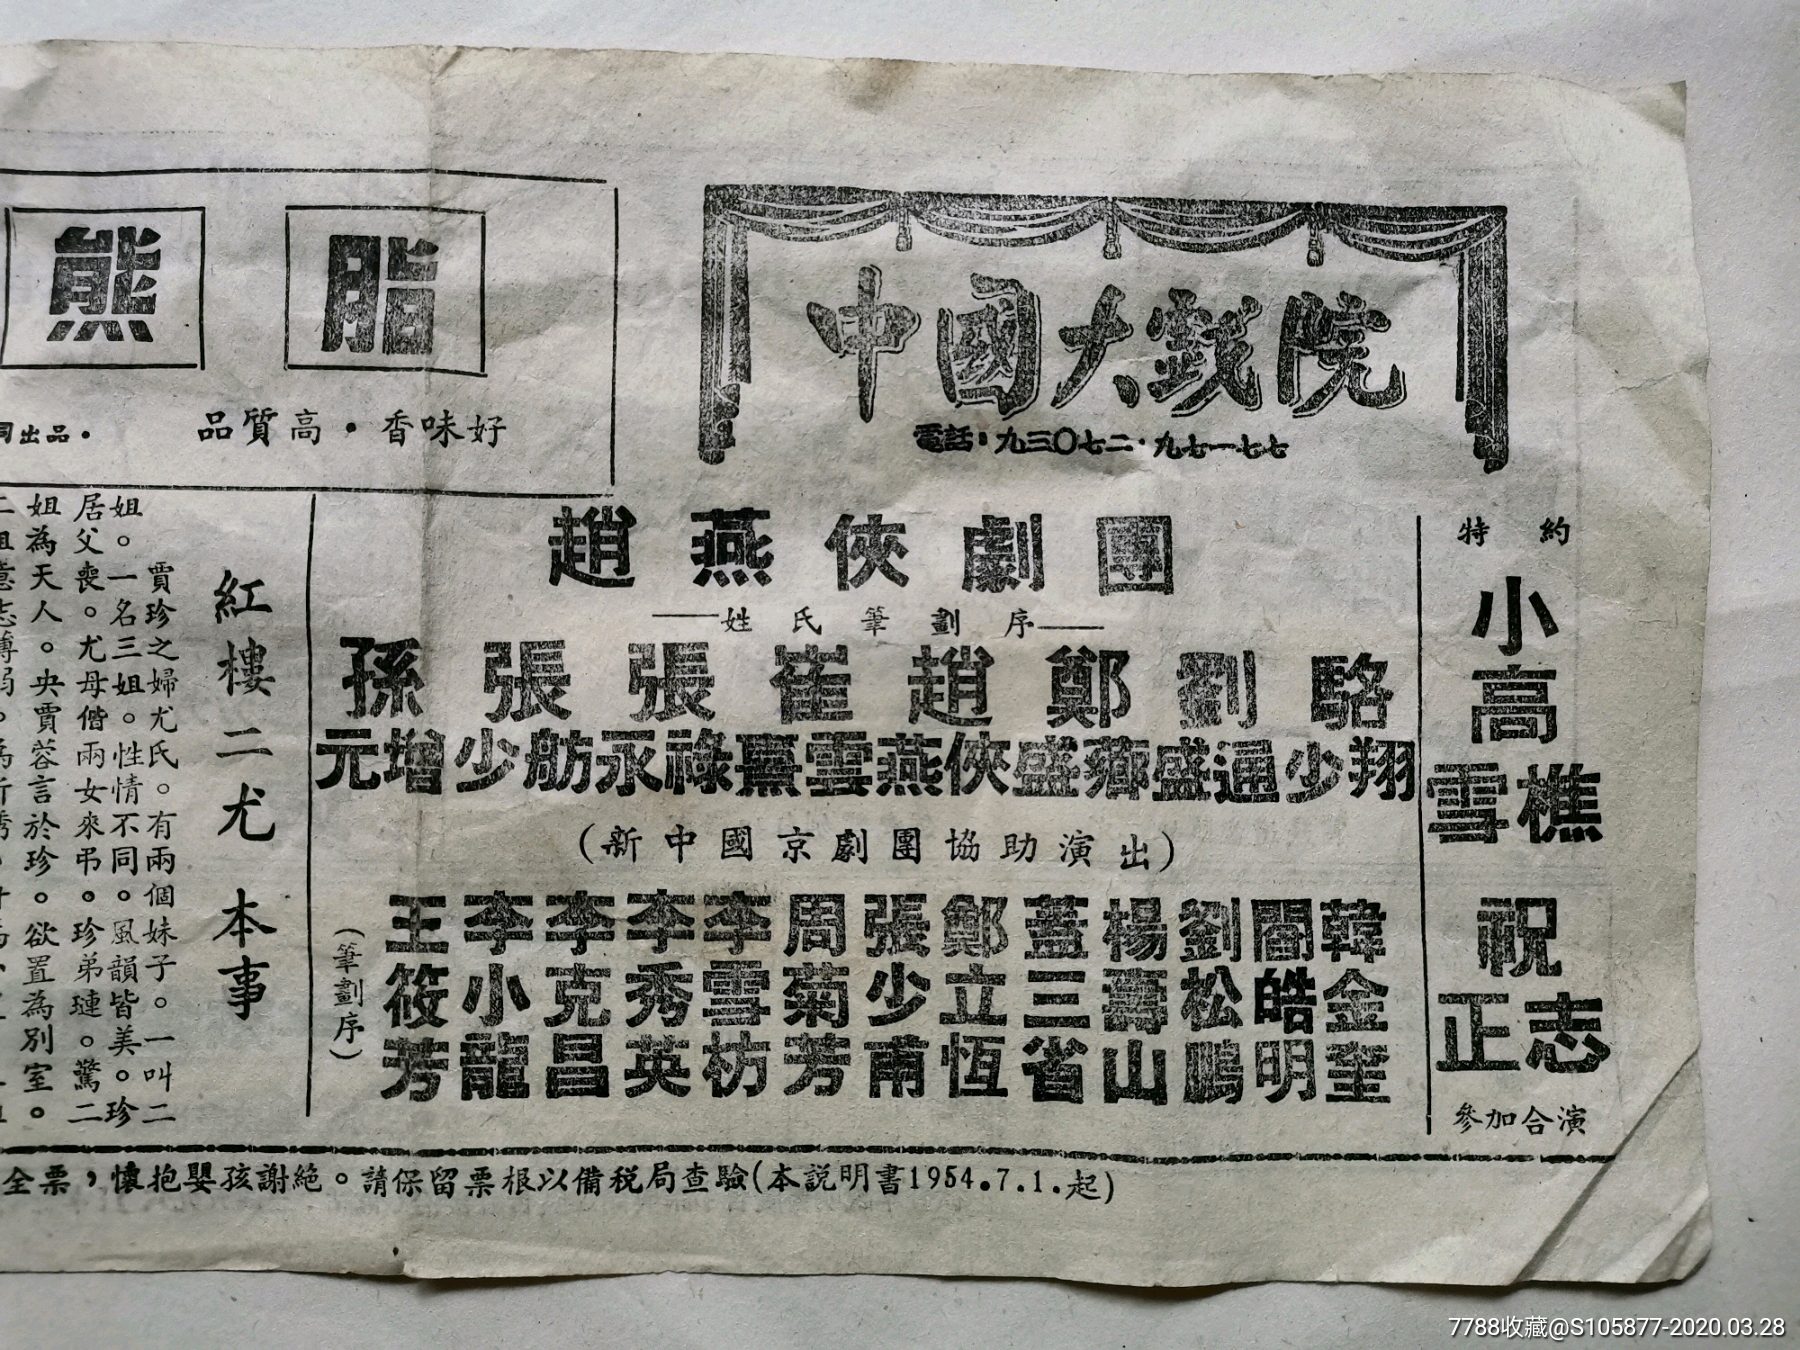 中國大戲院
電話：九三〇七二·九七一七七
熊 脂
同出品。 品質高·香味好
特約
小高雪樵
祝正志
參加合演
趙燕俠劇團
——姓氏筆劃序——
孫 張 張 崔 趙 鄭 劉 駱
元增 少舫 永祿 熹雲 燕俠 盛薌 盛通 少翔
（新中國京劇團協助演出）
王 李 李 李 李 周 張 鄭 蓋 楊 劉 閻 韓
筱 小 克 秀 雪 菊 少 立 三 壽 松 皓 金
芳 龍 昌 英 枋 芳 甫 恆 省 山 鵬 明 奎
（筆劃序）
紅樓二尤 本事
賈珍之婦尤氏。有兩個妹子。一叫二
姐。一名三姐。性情不同。風韻皆美。珍
居父喪。尤母偕兩女來弔。珍弟璉。驚二
姐為天人。央賈蓉言於珍。欲置為別室。
全票，懷抱嬰孩謝絕。請保留票根以備税局查驗(本説明書1954.7.1.起)
7788收藏@S105877-2020.03.28